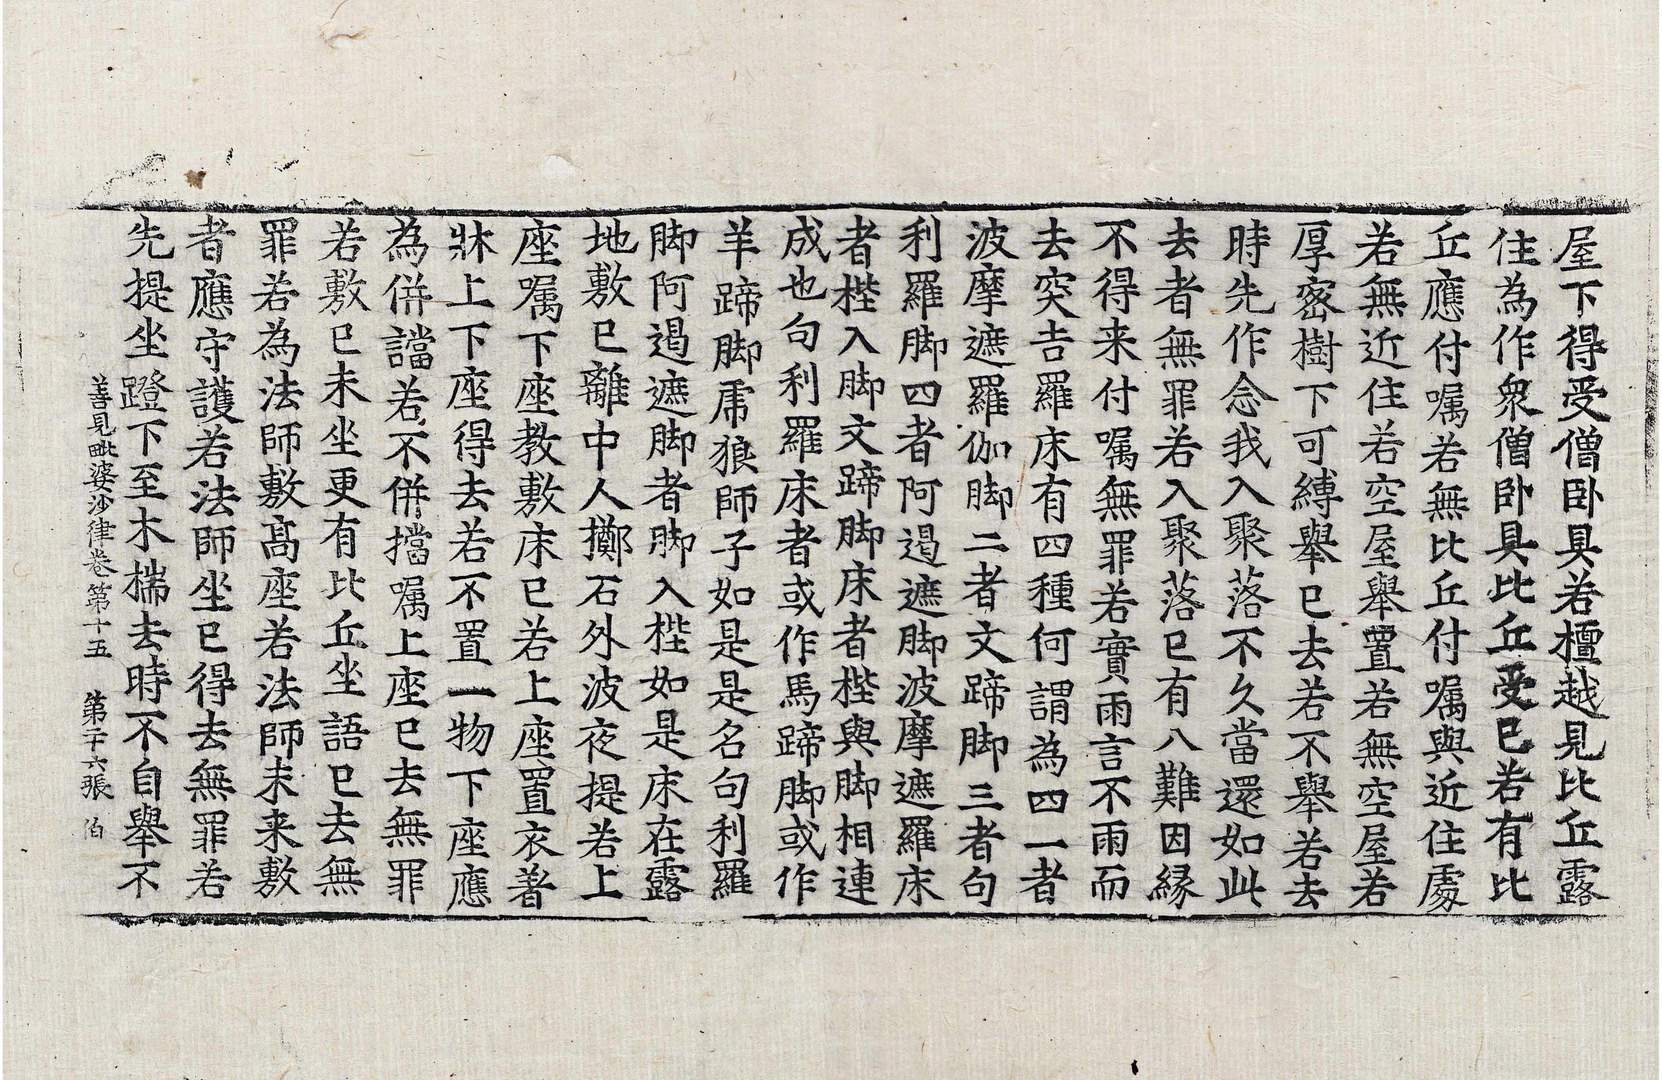 屋下得受僧卧具若檀越見比丘露
住為作衆僧卧具比丘受已若有比
丘應付嘱若無比丘付嘱與近住處
若無近住若空屋舉置若無空屋若
厚密樹下可縛舉已去若不舉若去
時先作念我入聚落不久當還如此
去者無罪若入聚落已有八難因縁
不得来付嘱無罪若實雨言不雨而
去突吉羅床有四種何謂為四一者
波摩遮羅伽脚二者文蹄脚三者句
利羅脚四者阿遏遮脚波摩遮羅床
者桎入脚文蹄脚床者桎與脚相連
成也句利羅床者或作馬蹄脚或作
羊蹄脚虎狼師子如是是名句利羅
脚阿遏遮脚者脚入桎如是床在露
地敷已離中人擲石外波夜提若上
座嘱下座教敷床已若上座置衣著
牀上下座得去若不置一物下座應
為併譡若不併擋嘱上座已去無罪
若敷已未坐更有比丘坐語已去無
罪若為法師敷髙座若法師未来敷
者應守護若法師坐已得去無罪若
先提坐蹬下至木椯去時不自舉不
善見毗婆沙律卷第十五 第二十六張 伯